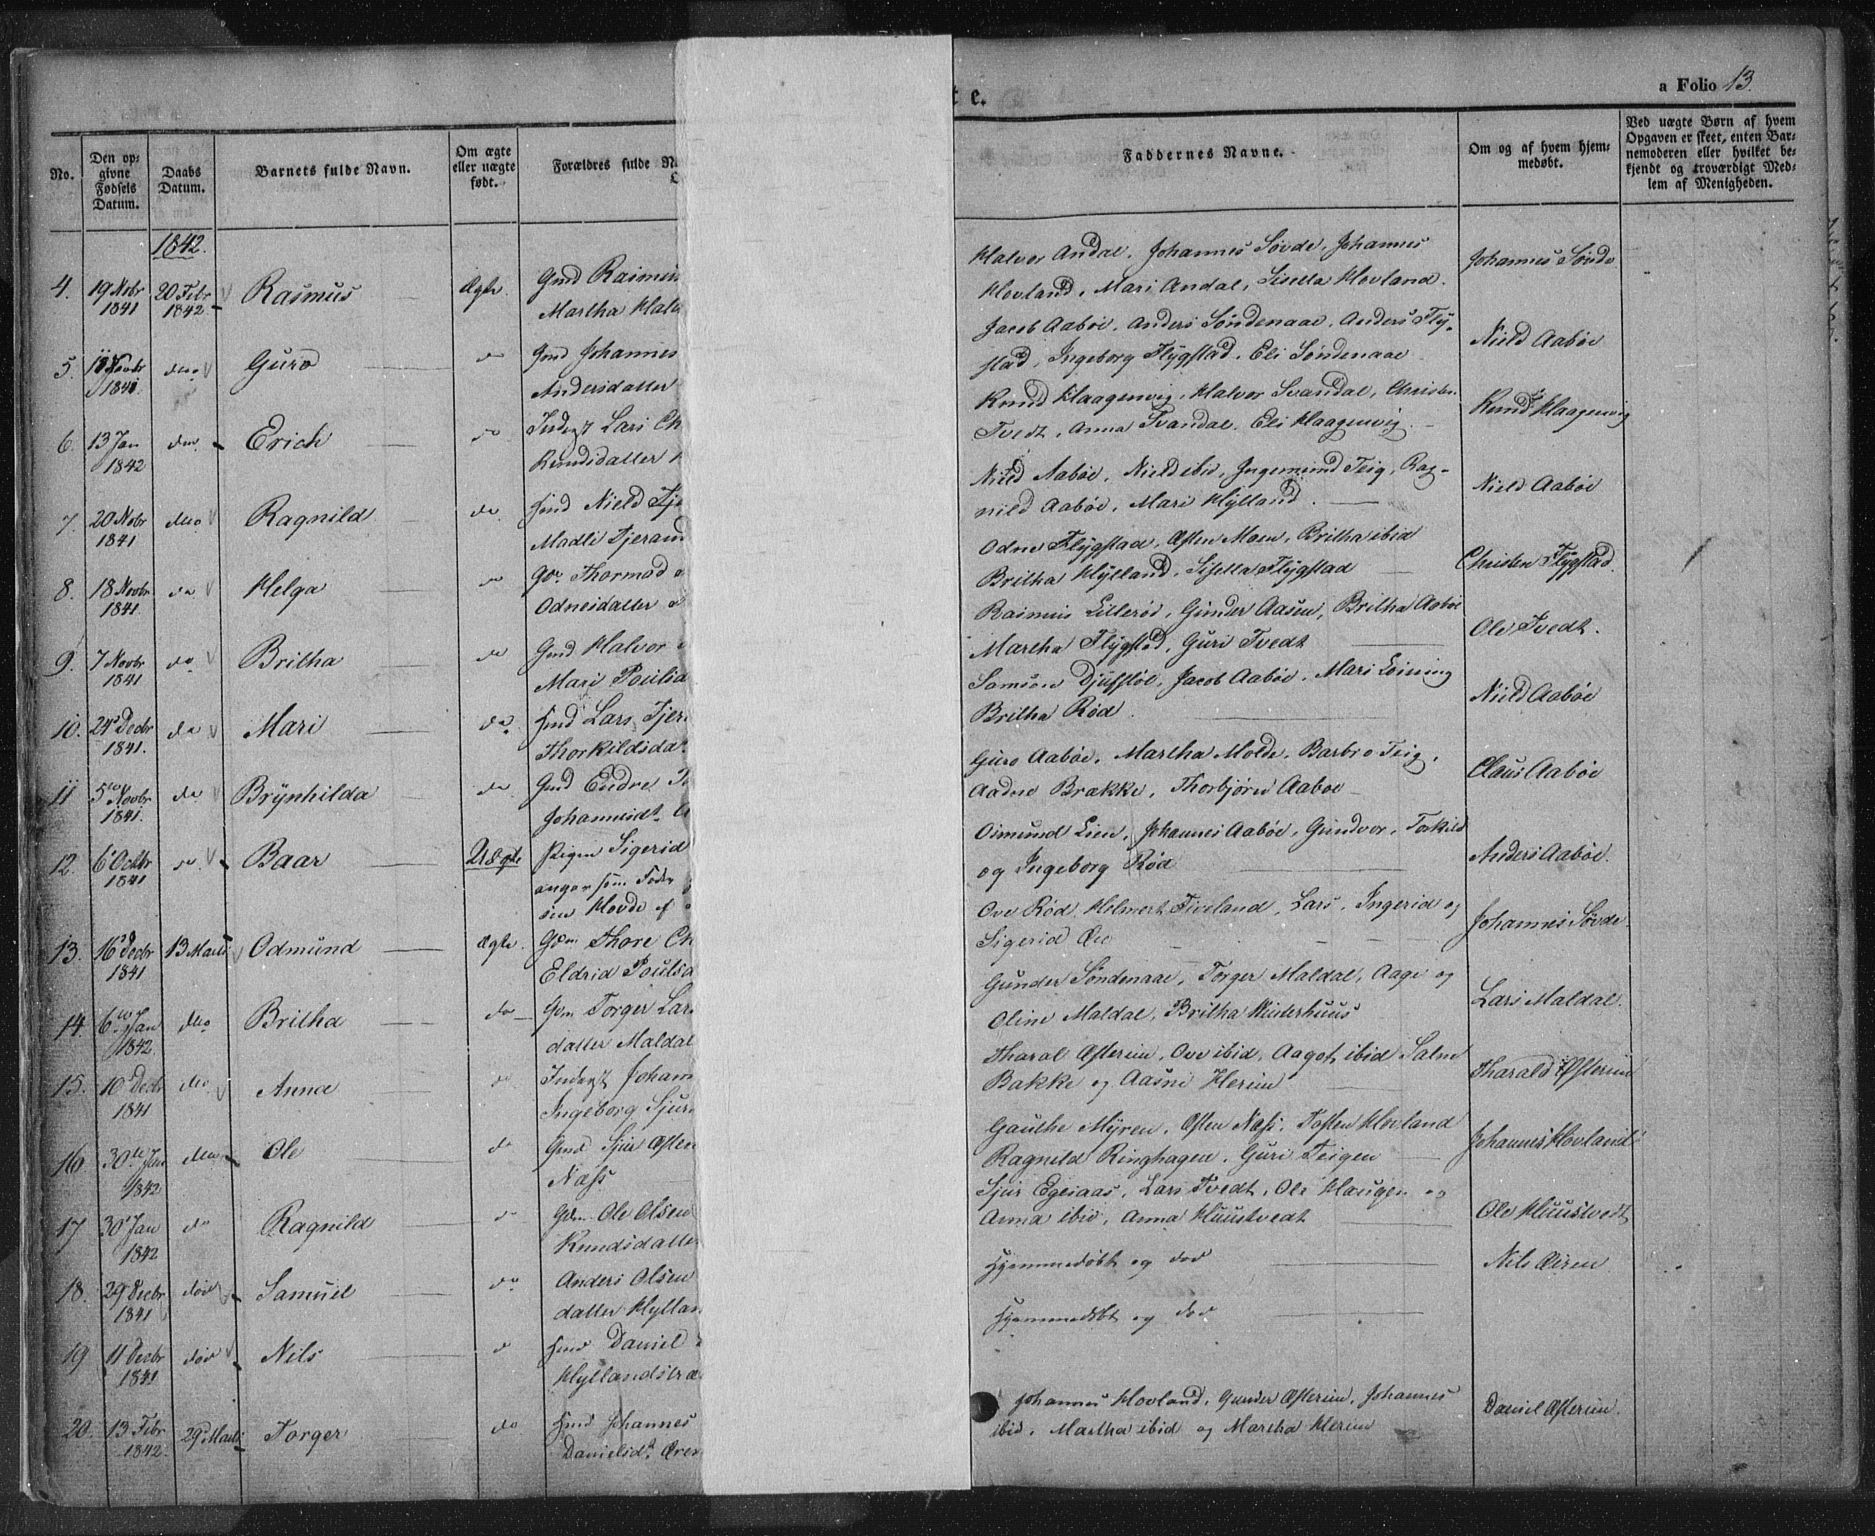 t e.
a Folio 13.
No.
Den op-
givne
Fødsels
Datum.
Daabs
Datum.
Barnets fulde Navn.
Om ægte
eller uægte
født.
Forældres fulde N
Faddernes Navne.
Om og af hvem hjem-
medøbt.
Ved uægte Børn af hvem
Opgaven er skeet, enten Bar-
nemoderen eller hvilket be-
kjendt og troværdigt Med-
lem af Menigheden.
1842.
4. 19 Novbr 1841 20 Febr 1842 Rasmus Ægte. Gmd Rasmus
Martha Halv
Halvor Andal, Johannes Søvde, Johannes
Hovland, Mari Andal, Sisella Hovland.
Johannes Søvde
5. Novbr 1841 do Guro do Gmd Johannes
Andersdatter
Jacob Aabøe, Anders Søndenaae, Anders Flyg-
stad, Ingeborg Flygstad, Eli Søndenaae
Nield Aabøe
6. 13 Jan 1842 do Erich do Inderst Lars Ch
Knudsdatter
Knud Haagenvig, Halvor Svandal, Christen
Tvedt, Anna Svandal, Eli Haagenvig.
Knud Haagenvig
7. 20 Novbr 1841 do Ragnild do Nield Tje
Madli Tjerand
Nield Aabøe, Nield ibid, Ingemund Teig, Rag-
nild Aabøe, Mari Hylland.
Nield Aabøe
8. 18 Novbr 1841. do Helga do Thormod
Odnesdatter
Odne Flygstad, Østen Moen, Britha ibid
Britha Hylland, Sisella Flygstad
Christen Flygstad.
9. 7 Novbr 1841 do Britha do Gmd Halvor
Mari Poulsda
Rasmus Lillerød, Gunder Aasen, Britha Aabøe
Martha Flygstad, Guri Tvedt
Ole Tvedt.
10. 24 Decbr 1841. do Mari do Hmd Lars Tjer
Thorkildsda
Samson Djufsløe, Jacob Aabøe, Mari Loining
Britha Rød.
Nield Aabøe
11 5 Novbr 1841. do Brynhilda do Gmd Endre
Johannesdt
Guro Aabøe, Martha Molde, Barbro Teig,
Aadne Brække, Thorbjørn Aabøe
Claus Aabøe
12. 6 Octbr 1841 do Baar Uægte Pigen Sigerid
angav som Fader
Hovde af
Osmund Lien, Johannes Aabøe, Gundvor, Torkild
og Ingeborg Rød
Anders Aabøe.
13. 16 Decbr 1841 13 Marts Odmund Ægte. Thore Ch
Eldrid Poulsd
Ove Rød, Helmert Fiveland, Lars, Ingerid og
Sigerid
Johannes Søvde.
14. 6 Jan 1842 do Britha do Torger Lar
datter Maldal
Gunder Søndenaae, Torger Maldal, Aage og
Oline Maldal, Britha Winterhuus
Lars Maldal.
15. 10 Decbr 1841 do Anna do Inderst Johan
Ingeborg Sjur
Tharal Østerim, Ove ibid, Aagot ibid
Bakke og Aasne Herim
Tharald Østerim
16. 30 Jan 1842 do Ole do Gmd Sjur Østen
Næss
Gauthe Myren, Østen Næss, Tosten Hovland
Ragnild Ringhagen, Guri Teigen
Johannes Hovland
17 30 Jan 1842 do Ragnild do Ole Olsen
Knudsdatter
Sjur Egesaas, Lars Tvedt, Ole Haugen og
Anna ibid, Anna Huustvedt
Ole Huustvedt
18. 29 Decbr 1841 død Samuel do Anders Olsen
datter Hyllan
Hjemmedøbt og død
Nils
19 11 Decbr 1841 død Nils do Daniel
Hyllandstræ
Hjemmedøbt og død
20. 13 Febr 1842 29 Marts Torger do Hmd Johannes
Danielsdt
Johannes Hovland, Gunder Østerim, Johannes
ibid, Martha ibid og Martha Herim
Daniel Østerim.